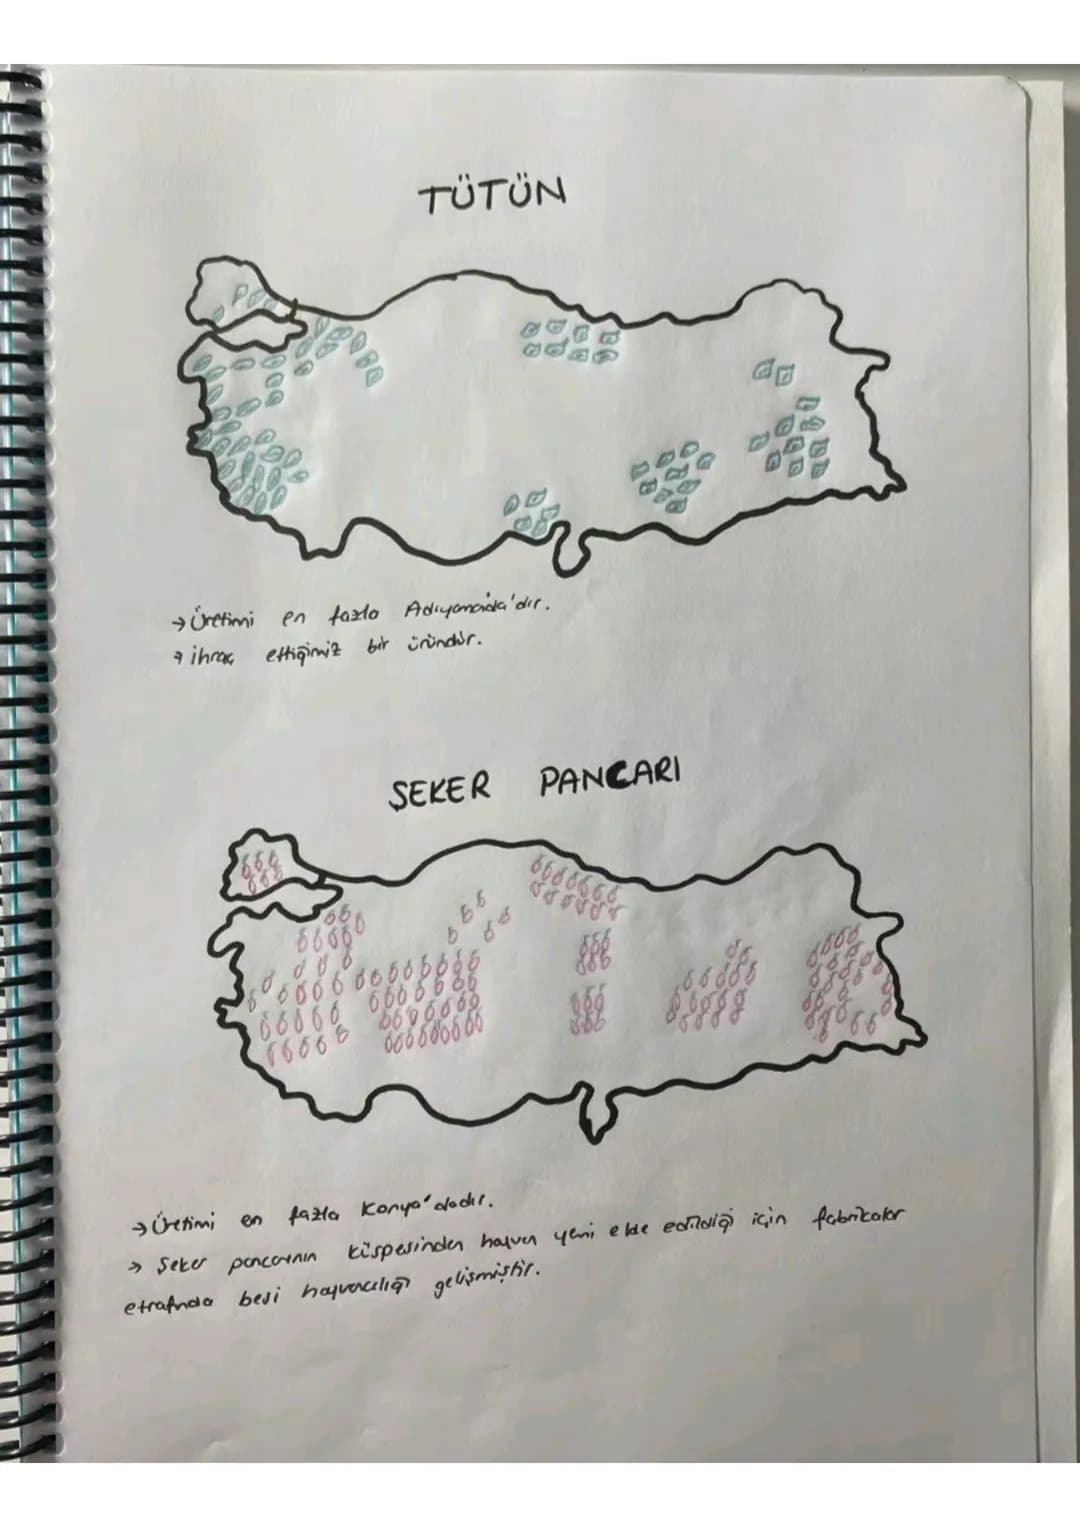 TÜTÜN
→ Üretimi en fazla Adıyaman'da'dır.
→ ihraç ettiğimiz bir üründür.
ŞEKER PANCARI
→ Üretimi en fazla Konya'dadır.
→ Şeker pancarının küspesinden hayvan yemi elde edildiği için fabrikalar
etrafında besi hayvancılığı gelişmiştir.